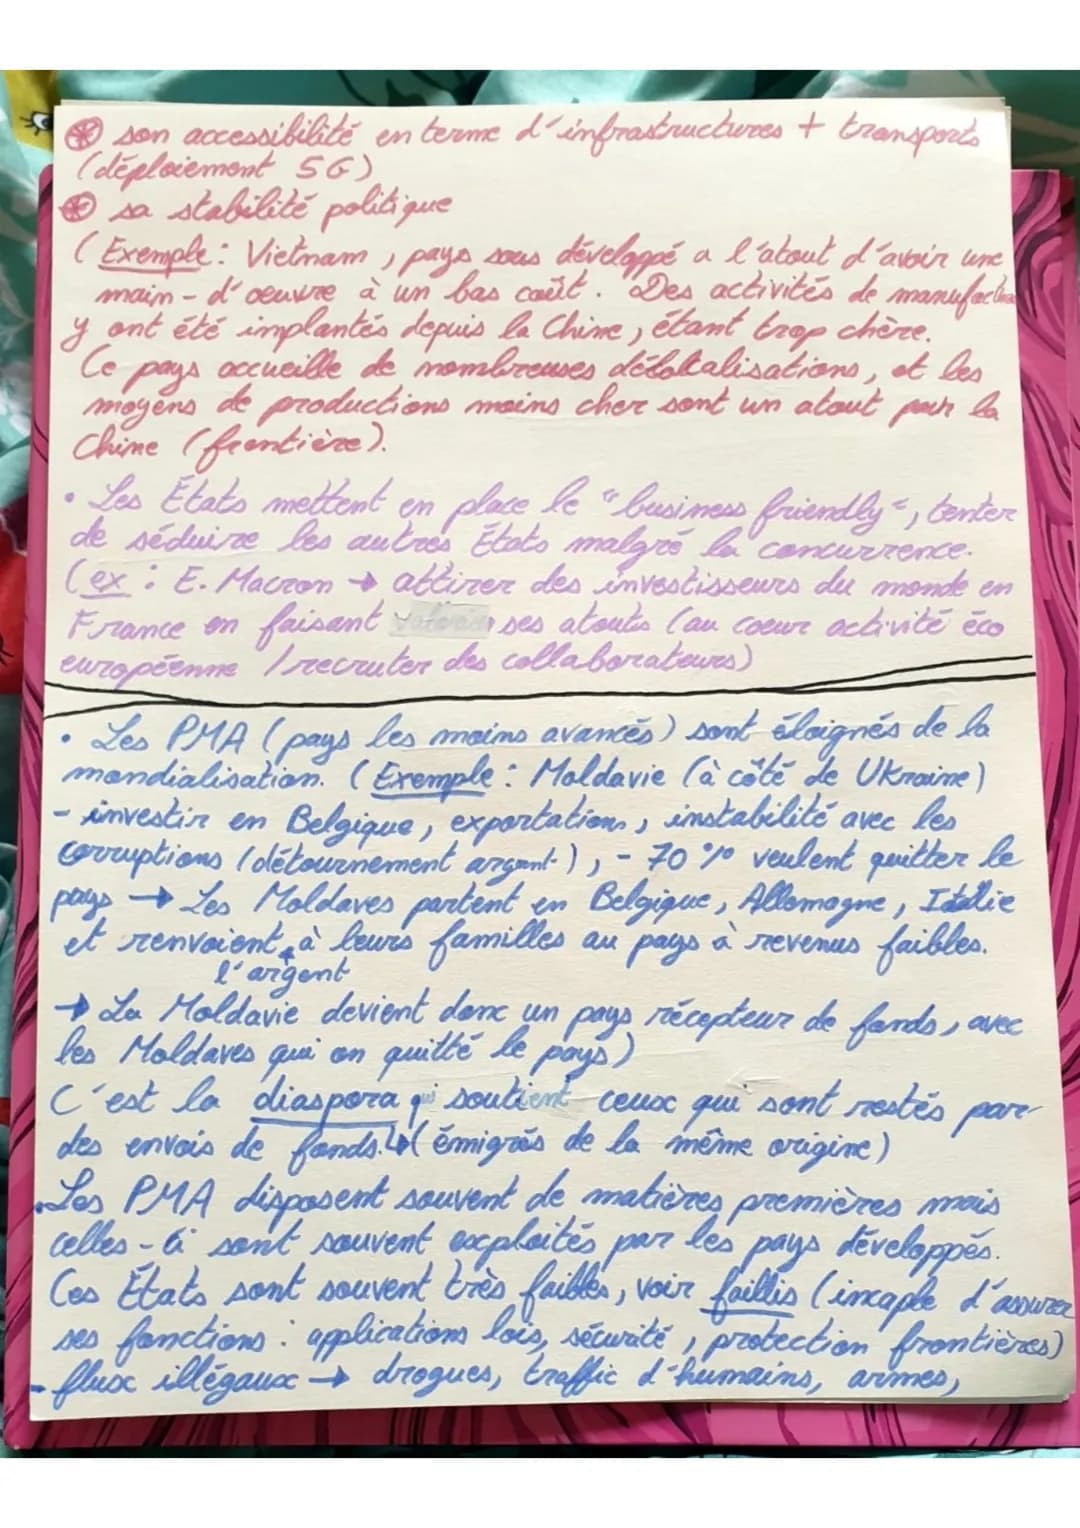 ⊛ son accessibilité en terme d'infrastructures + transports
(déploiement 5G)
⊛ sa stabilité politique
(Exemple : Vietnam, pays sous développé a l'atout d'avoir une
main-d'oeuvre à un bas coût. Des activités de
y ont été implantés depuis la Chine, étant trop chère.
Ce pays accueille de nombreuses délocalisations, et les
moyens de productions moins cher sont un atout pour la
Chine (frontière).
• Les États mettent en place le "business friendly", tenter
de séduire les autres États malgré la concurrence.
(ex : E. Macron → attirer des investisseurs du monde en
France en faisant ses atouts (au coeur activité éco
européenne / recruter des collaborateurs)
• Les PMA (pays les moins avancés) sont éloignés de la
mondialisation. (Exemple : Moldavie (à côté de Ukraine)
- investir en Belgique, exportations, instabilité avec les
corruptions (détournement argent), - 70 % veulent quitter le
pays → Les Moldaves partent en Belgique, Allemagne, Italie
et renvoient à leurs familles au pays à revenus faibles.
l'argent
→ La Moldavie devient donc un pays récepteur de fonds, avec
les Moldaves qui on quitté le pays)
C'est la diaspora qui soutient ceux qui sont restés par
des envois de fonds. ↳ (émigrés de la même origine)
. Les PMA disposent souvent de matières premières mais
celles-ci sont souvent exploités par les pays développés.
Ces États sont souvent très faibles, voir faillis (incaple d'assurer
ses fonctions : applications lois, sécurité, protection frontières)
- flux illégaux → drogues, traffic d'humains, armes,